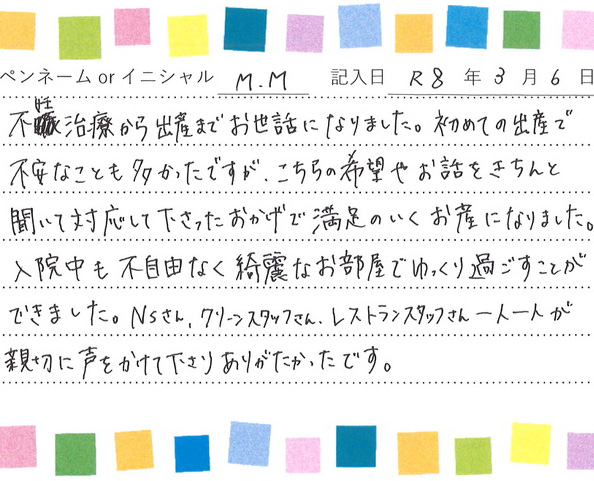 ペンネーム or イニシャル M.M 記入日 R8 年 3 月 6 日
不妊治療から出産までお世話になりました。初めての出産で
不安なことも多かったですが、こちらの希望やお話をきちんと
聞いて対応して下さったおかげで満足のいくお産になりました。
入院中も不自由なく綺麗なお部屋でゆっくり過ごすことが
できました。Nsさん、クリーンスタッフさん、レストランスタッフさん一人一人が
親切に声をかけて下さりありがたかったです。